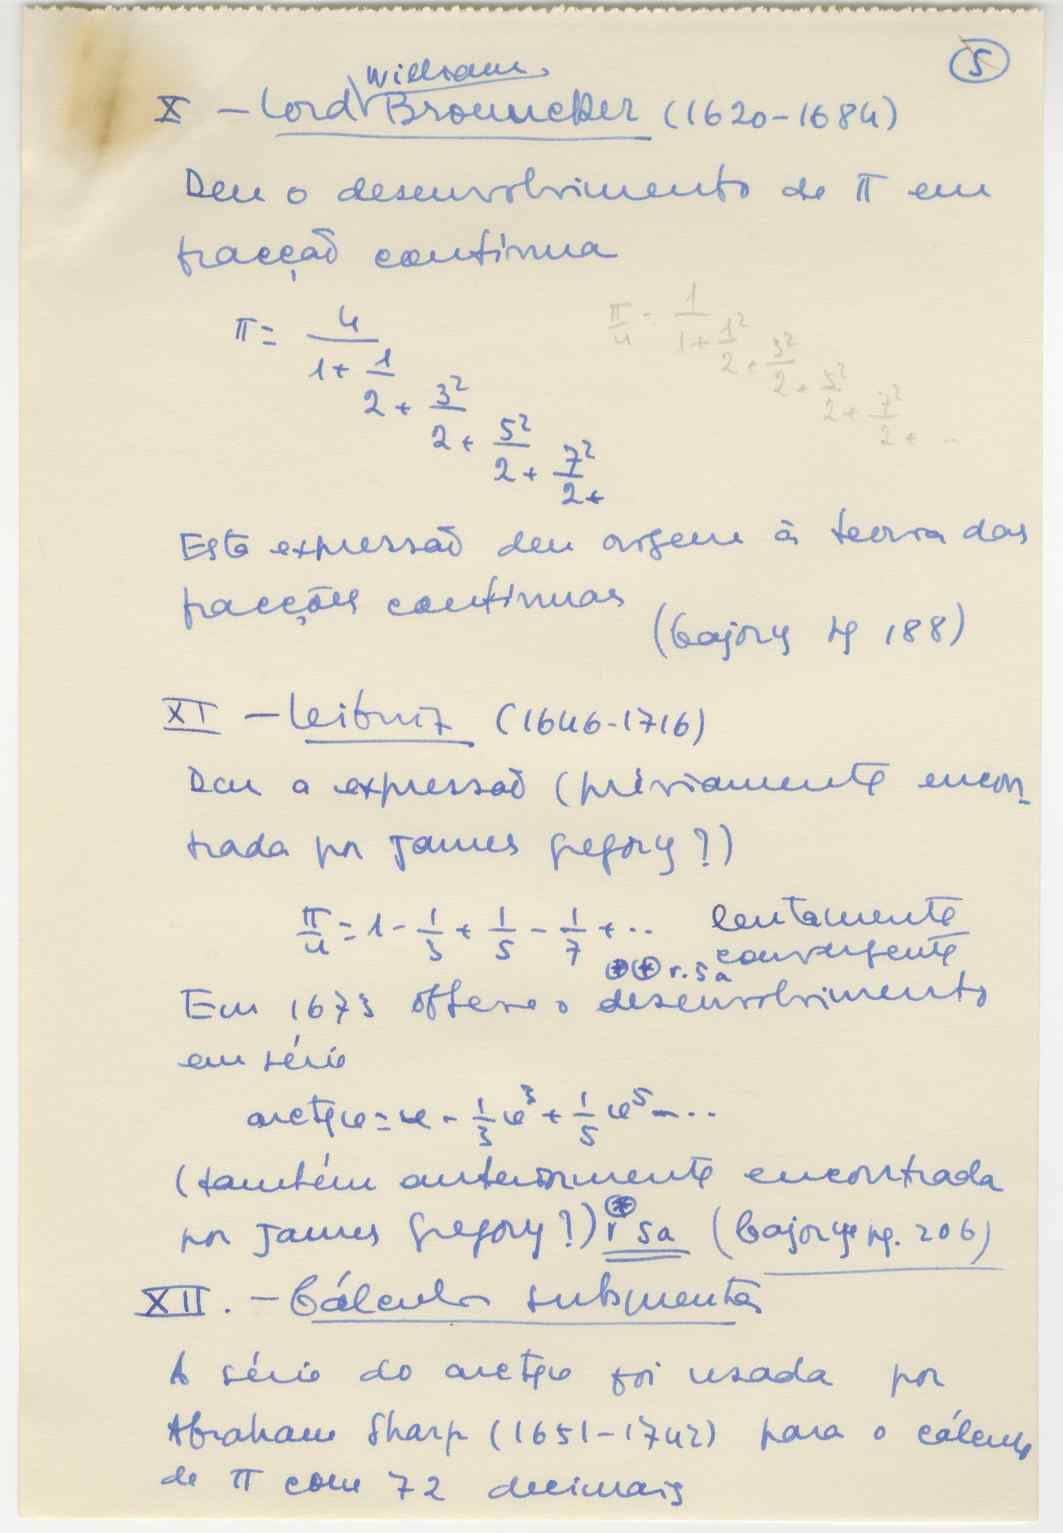 5
William
X - Lord Brouncker (1620-1684)
Deu o desenvolvimento de π em
fracção contínua
π = 4/(1 + 1/(2 + 3²/(2 + 5²/(2 + 7²/(2 +
π/4 = 1/(1 + 1²/(2 + 3²/(2 + 5²/(2 + 7²/(2 + ..
Esta expressão deu origem à teoria das
fracções contínuas
(Cajory pg 188)
XI - Leibniz (1646-1716)
Deu a expressão (préviamente encon-
trada por James Gregory?)
π/4 = 1 - 1/3 + 1/5 - 1/7 + .. lentamente
convergente
r. sa
Em 1673 obteve o desenvolvimento
em série
arctg x = x - 1/3 x³ + 1/5 x⁵ - ...
(também anteriormente encontrada
por James Gregory?) * r sa (Cajory pg. 206)
XII. - Cálculos subsequentes
A série do arctg x foi usada por
Abraham Sharp (1651-1742) para o cálculo
de π com 72 decimais